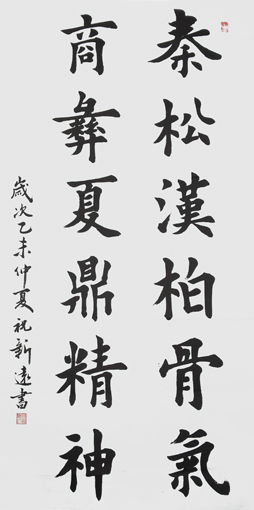 秦松漢柏骨氣
商彝夏鼎精神
歲次乙未仲夏祝新遠書